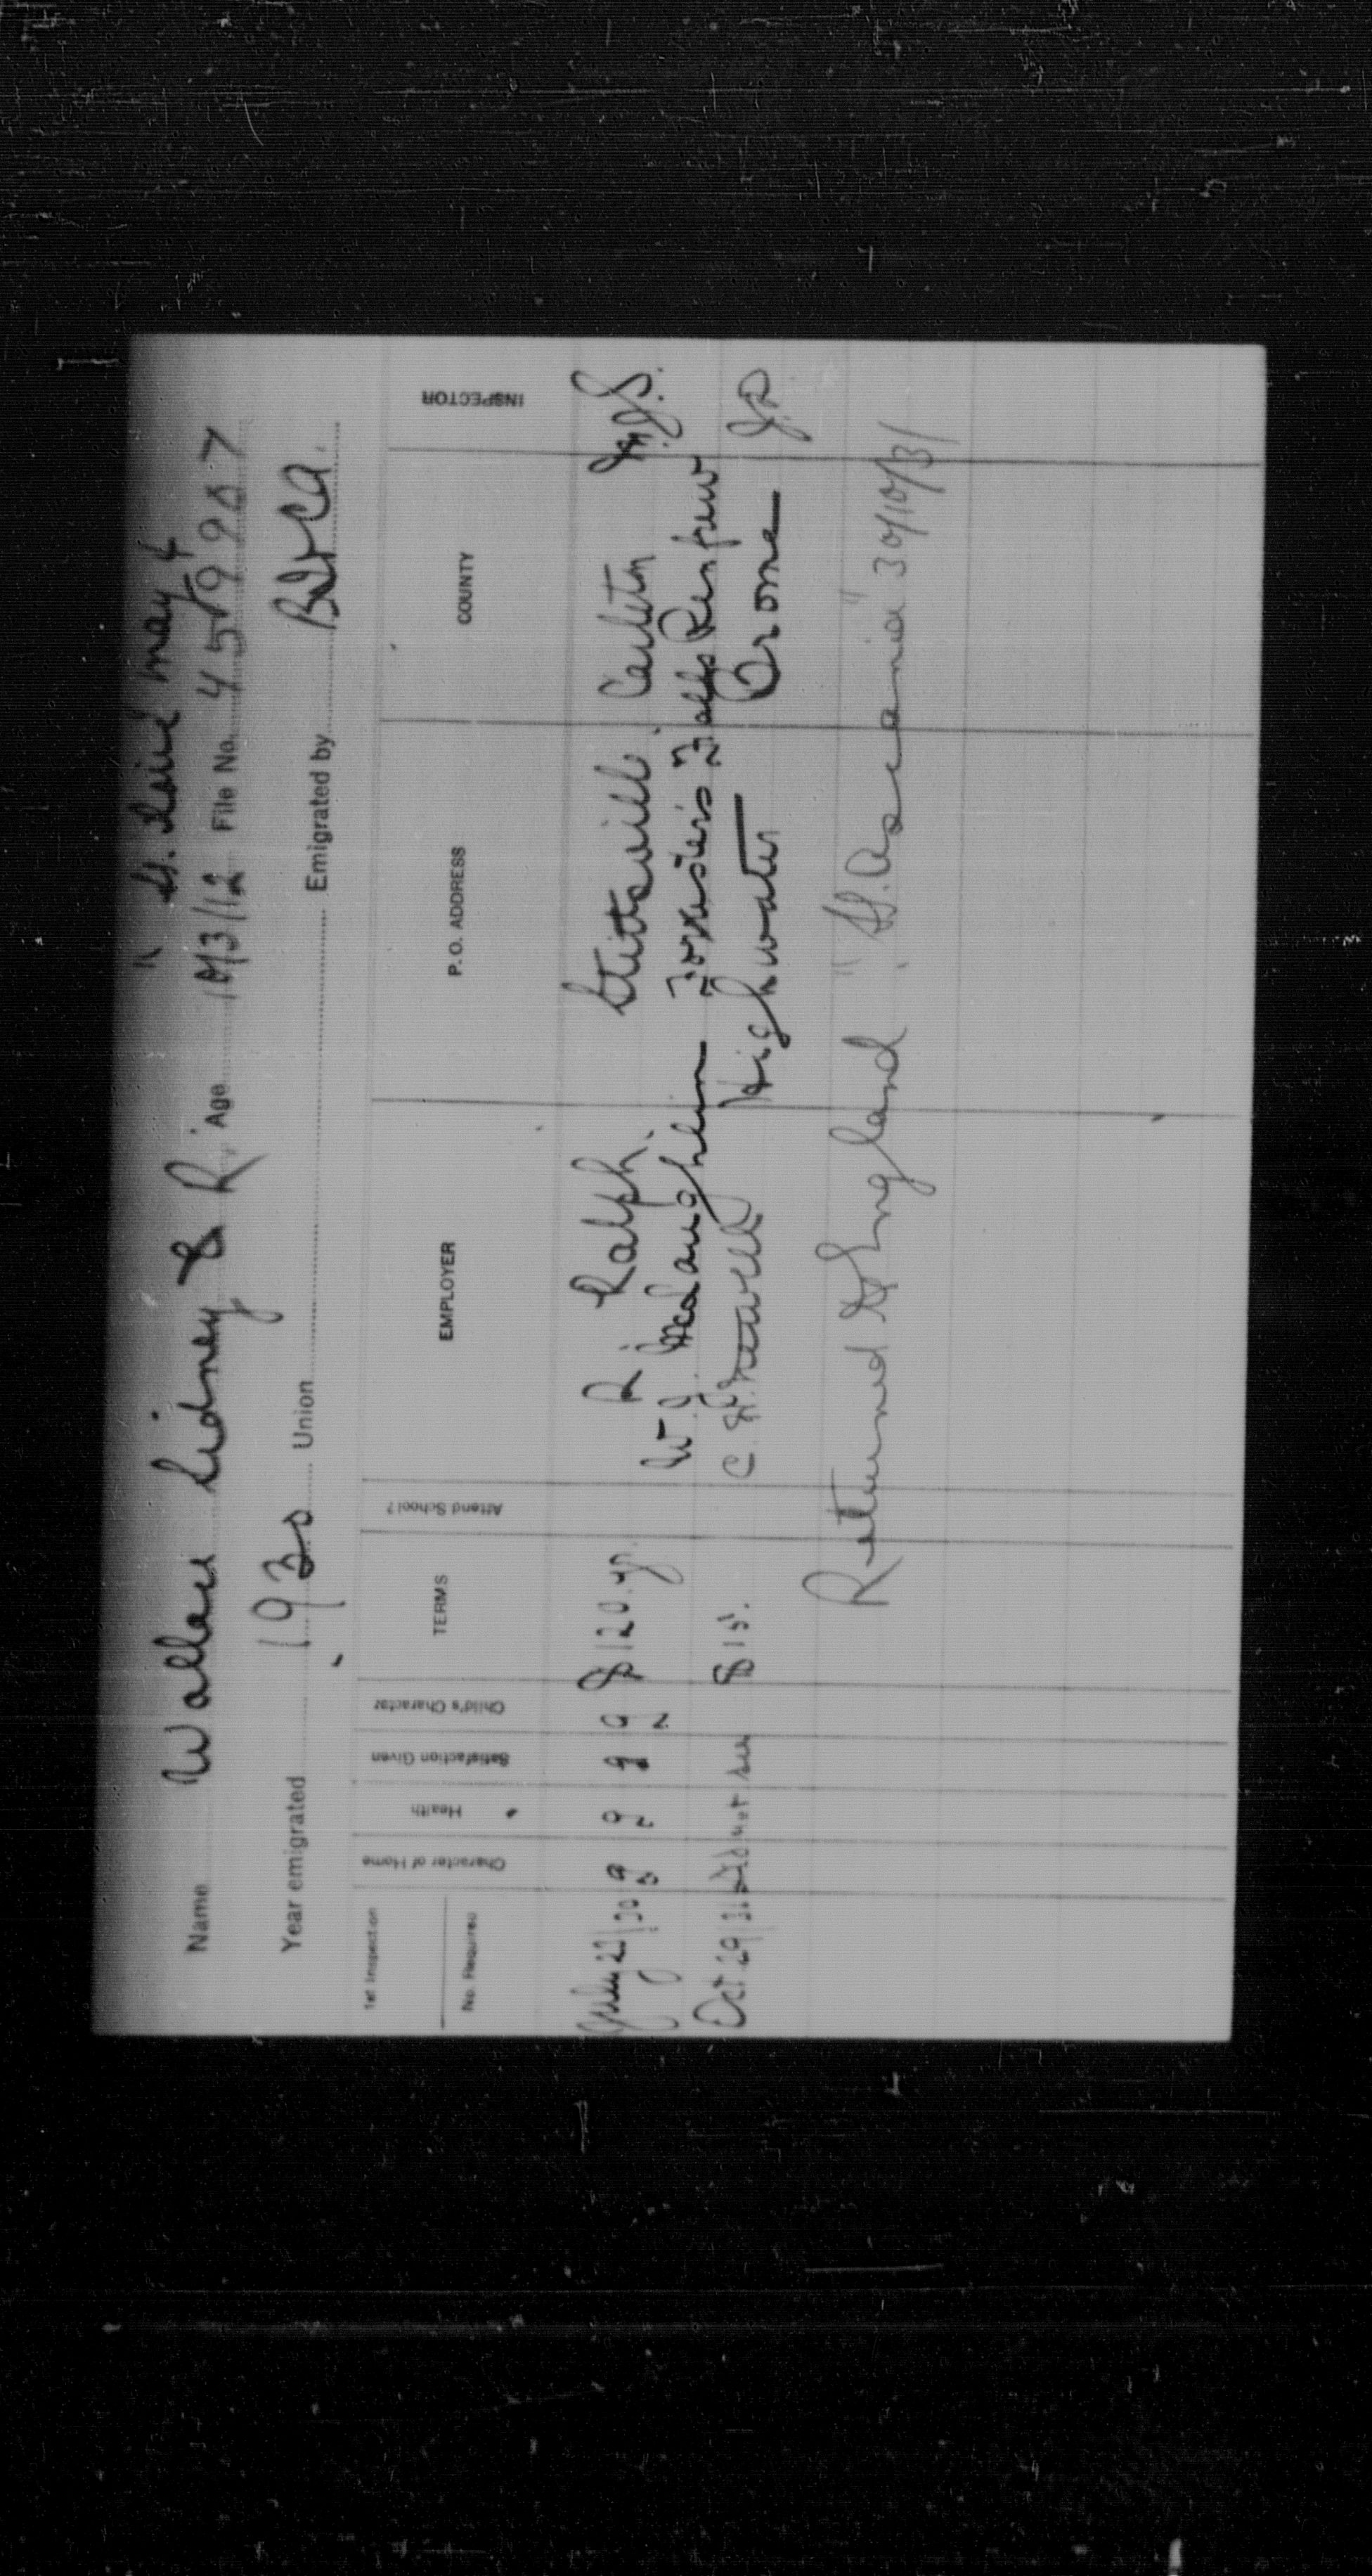 " A. Laird May 4
Name Wallace Sidney E R Age 10/3/12 File No. 459907
Year emigrated 1930 Union Emigrated by
1st Inspection
No. Required
Character of Home Health Satisfaction Given Child's Character TERMS Attend School? EMPLOYER P. O. ADDRESS COUNTY INSPECTOR
July 23/30 g g g g $120. yr. R. Ralph. Stittsville Carleton M.J.S.
W J McLaughlin Forester's Falls Renfrew
Oct 29/31 Did not see $15. C H Newell Highwater Brome J.R
Returned to England "A. Ascania" 30/10/31